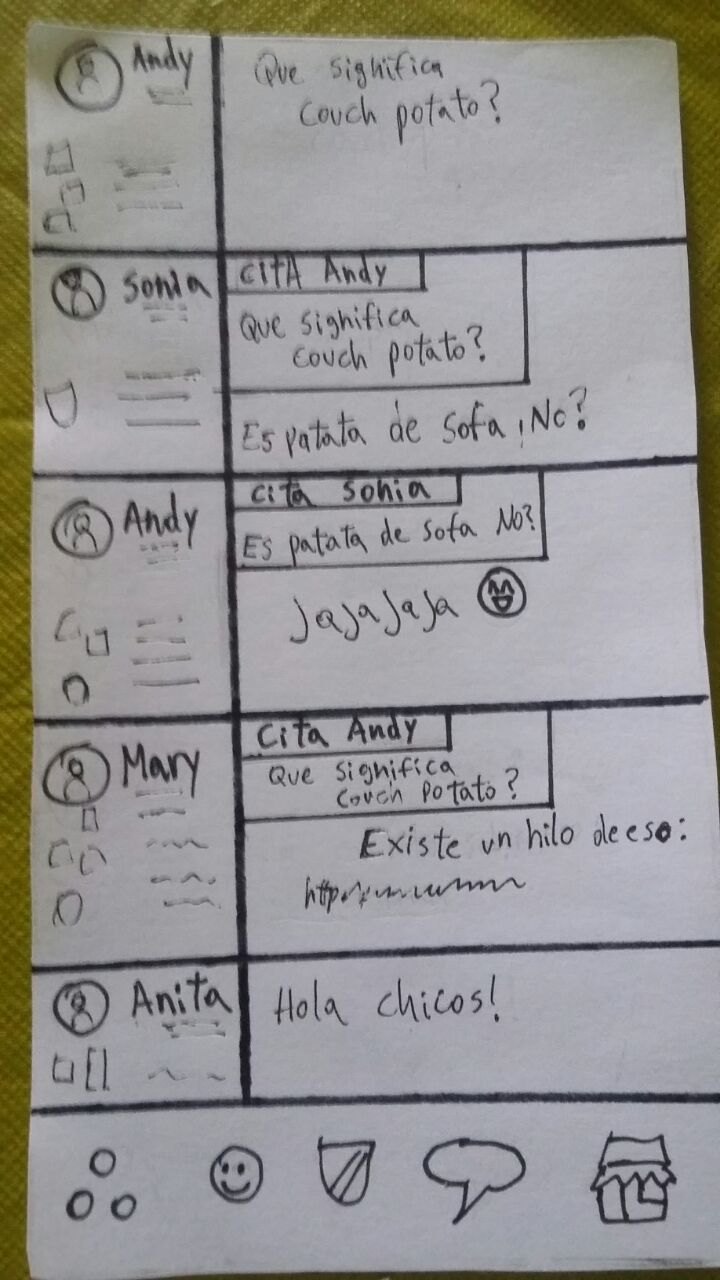 Andy
Que significa
couch potato?
Sonia
CitA Andy
Que significa
couch potato?
Es patata de sofa, No?
Andy
Cita Sonia
Es patata de sofa No?
Jajajaja
Mary
Cita Andy
Que significa
couch potato?
Existe un hilo de eso:
http
Anita
Hola chicos!